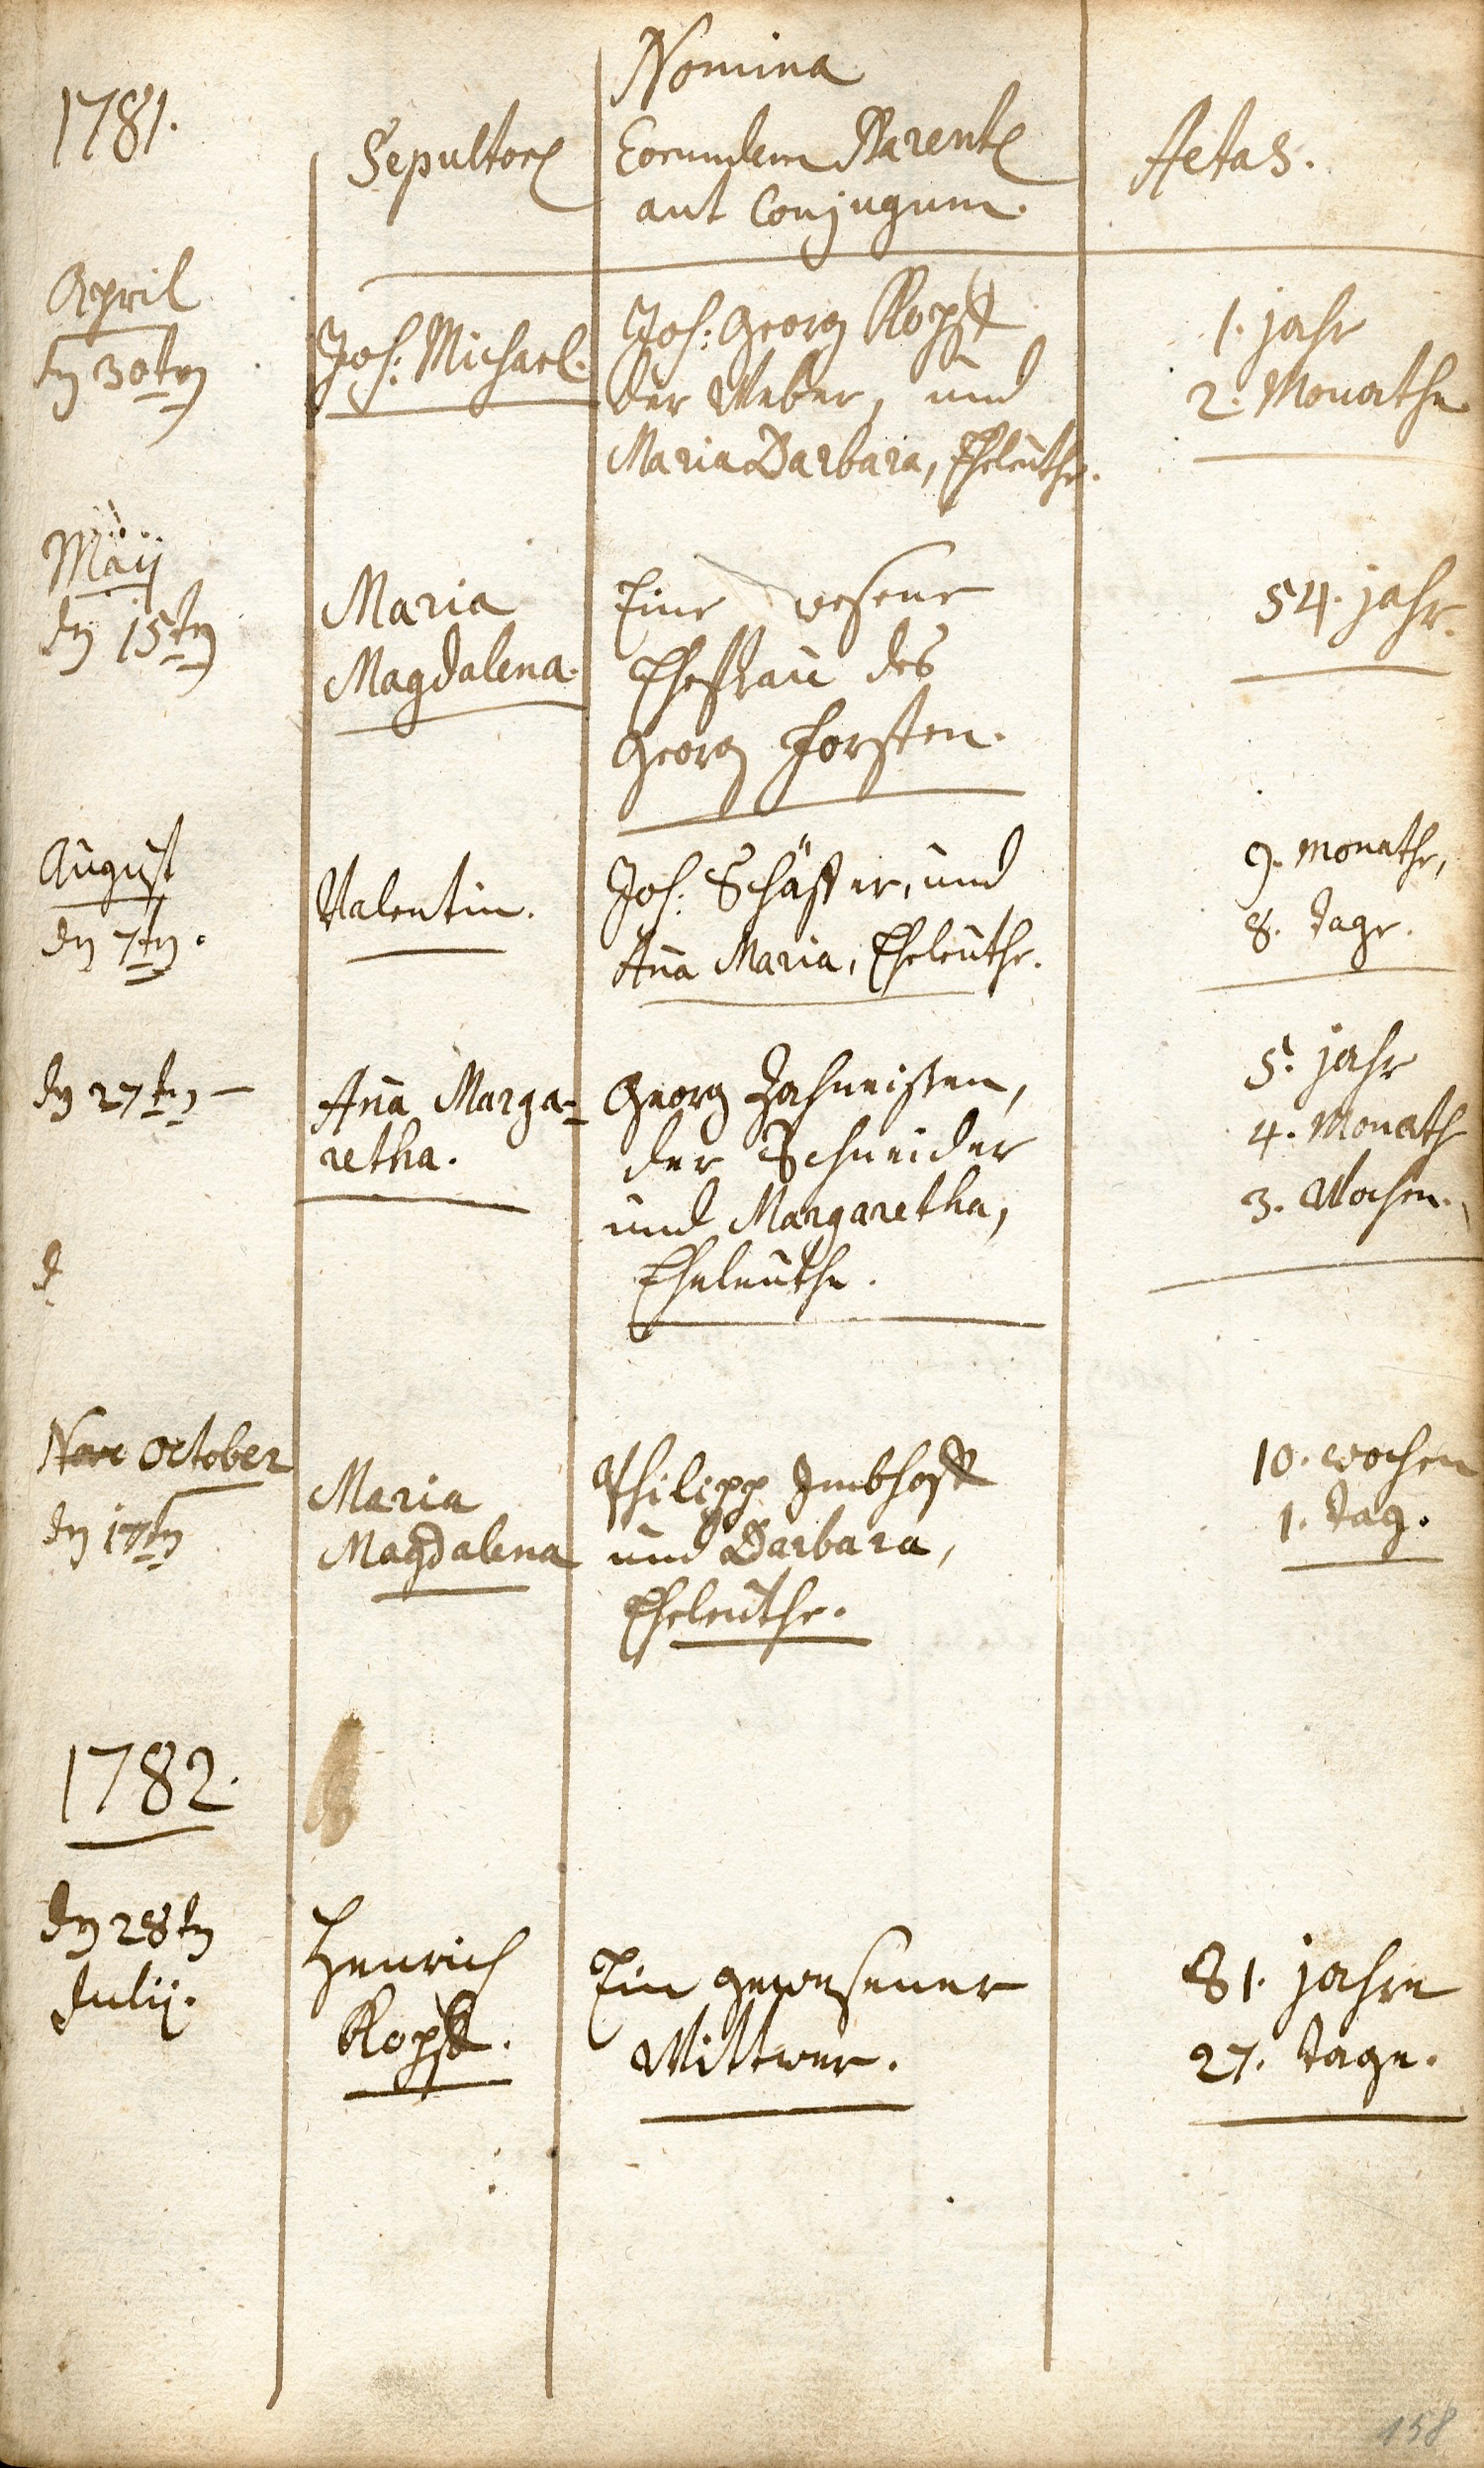 1781.
Sepultor
Nomina
Eorundem Parent
aut Conjugum.
Aetas.
April
dn 30tn
Joh: Michael.
Joh: Georg Kopff
der Weber, und
Maria Barbara, Eheleuthe.
1. jahr
2. Monathe
Maÿ
dn 15tn
Maria
Magdalena.
Eine wesene
Ehefrau des
Georg Horsten.
54. jahr.
August
dn 7tn.
Valentin.
Joh: Schäffer, und
Aña Maria, Eheleuthe.
9. Monathe,
8. tage.
dn 27tn –
Aña Marga-
retha.
Georg Zahneissen,
der Schneider
und Margaretha,
Eheleuthe.
5. jahr
4. Monath
3. Wochen.
d
Nov October
dn 17tn
Maria
Magdalena
Philipp Imbhoff
und Barbara,
Eheleuthe.
10. wochen
1. tag.
1782.
dn 28tn
Julij.
Henrich
Kopff.
Ein gewesener
Wittwer.
81. jahre
27. tage.
158